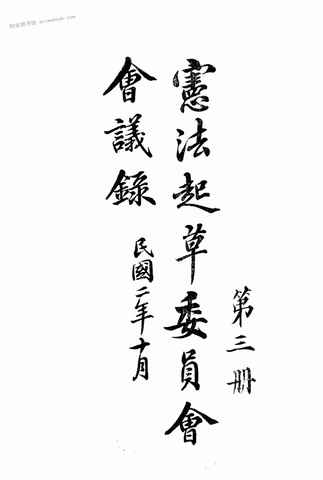 憲法起草委員會
第三册
會議錄
民國二年十月